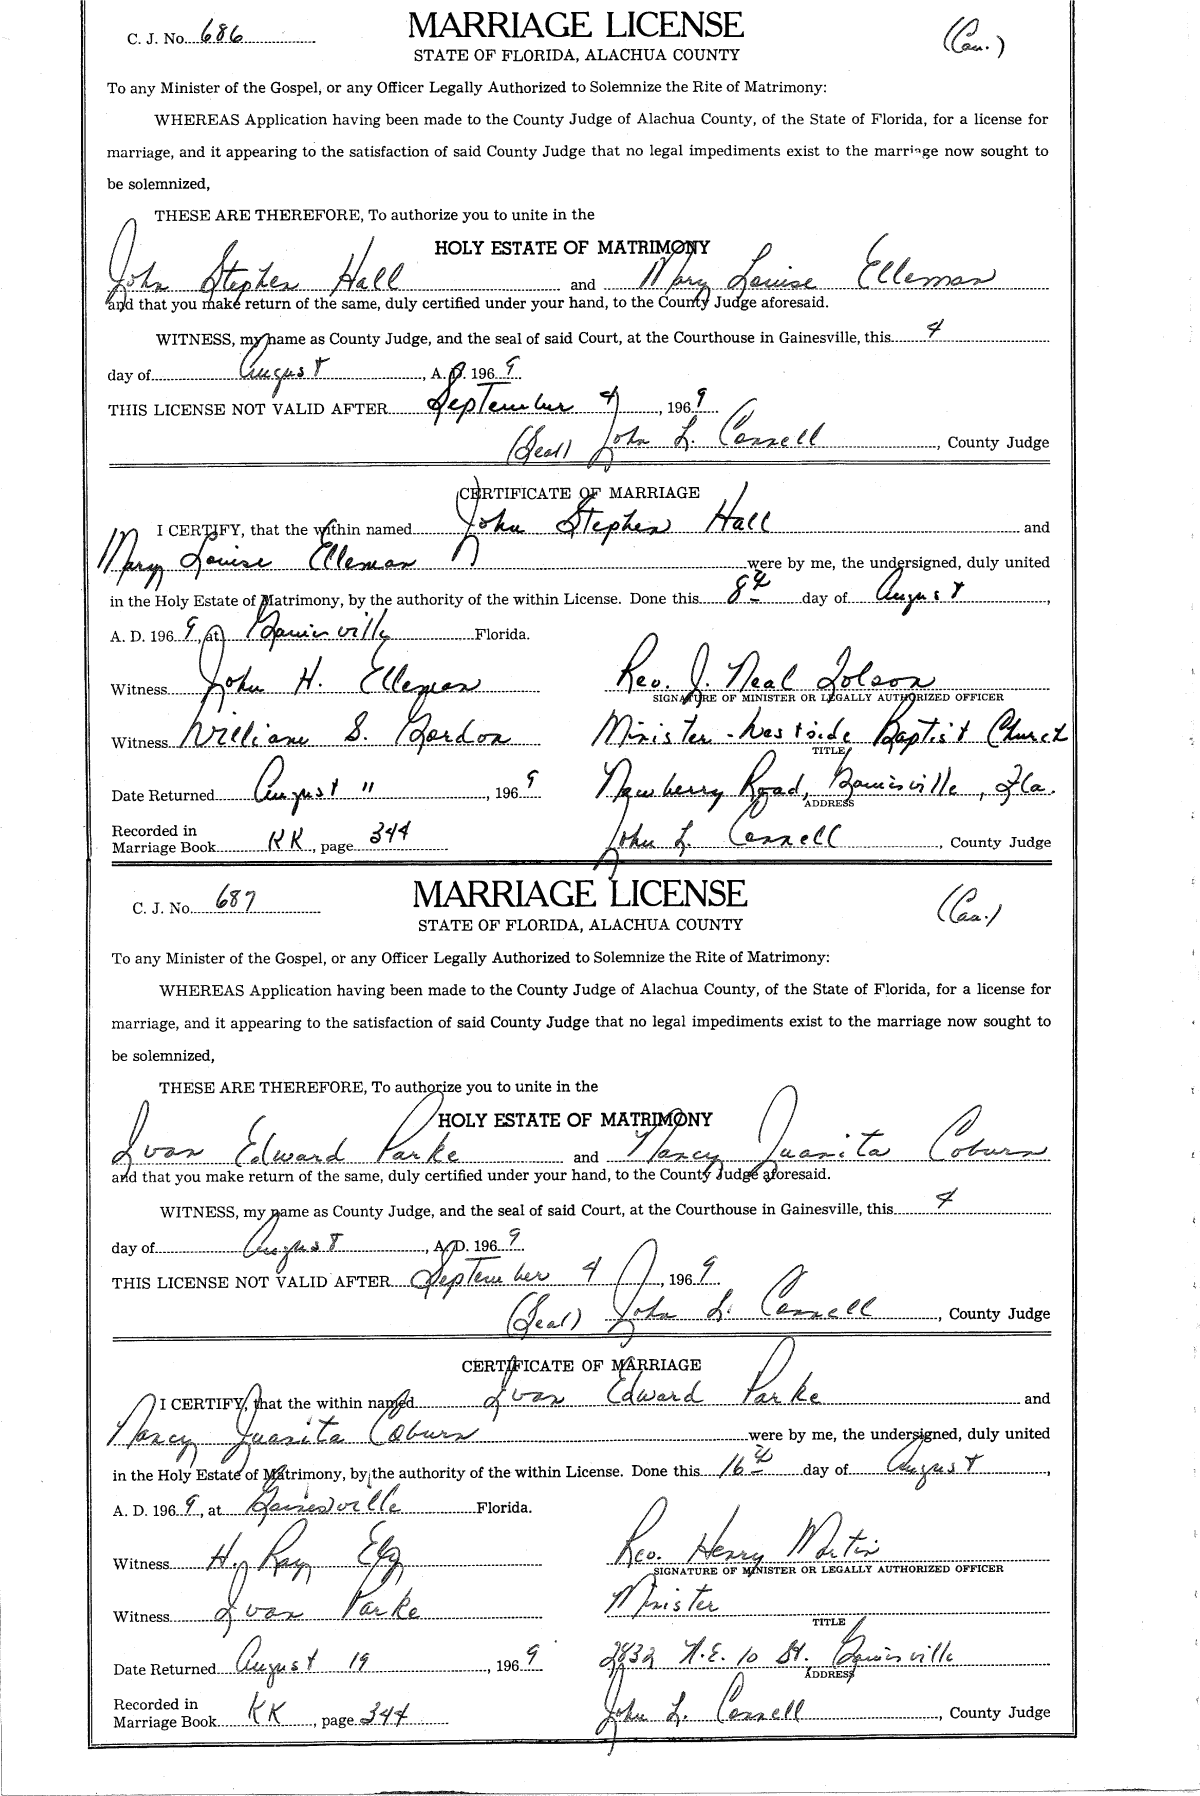 C. J. No. 686 MARRIAGE LICENSE (Cau.)
STATE OF FLORIDA, ALACHUA COUNTY
To any Minister of the Gospel, or any Officer Legally Authorized to Solemnize the Rite of Matrimony:
WHEREAS Application having been made to the County Judge of Alachua County, of the State of Florida, for a license for
marriage, and it appearing to the satisfaction of said County Judge that no legal impediments exist to the marriage now sought to
be solemnized,
THESE ARE THEREFORE, To authorize you to unite in the
HOLY ESTATE OF MATRIMONY
John Stephen Hall and Mary Louise Elleman
and that you make return of the same, duly certified under your hand, to the County Judge aforesaid.
WITNESS, my name as County Judge, and the seal of said Court, at the Courthouse in Gainesville, this 4
day of August, A. D. 1969
THIS LICENSE NOT VALID AFTER September 4, 1969
(Seal) John L. Connell, County Judge
CERTIFICATE OF MARRIAGE
I CERTIFY, that the within named John Stephen Hall and
Mary Louise Elleman were by me, the undersigned, duly united
in the Holy Estate of Matrimony, by the authority of the within License. Done this 8th day of August,
A. D. 1969, at Gainesville Florida.
Witness John H. Elleman Rev. J. Neal Tolson
SIGNATURE OF MINISTER OR LEGALLY AUTHORIZED OFFICER
Witness William S. Gordon Minister - Westside Baptist Church
TITLE
Date Returned August 11, 1969 Newberry Road, Gainesville, Fla.
ADDRESS
Recorded in
Marriage Book KK, page 344 John L. Connell, County Judge
C. J. No. 687 MARRIAGE LICENSE (Cau.)
STATE OF FLORIDA, ALACHUA COUNTY
To any Minister of the Gospel, or any Officer Legally Authorized to Solemnize the Rite of Matrimony:
WHEREAS Application having been made to the County Judge of Alachua County, of the State of Florida, for a license for
marriage, and it appearing to the satisfaction of said County Judge that no legal impediments exist to the marriage now sought to
be solemnized,
THESE ARE THEREFORE, To authorize you to unite in the
HOLY ESTATE OF MATRIMONY
Ivan Edward Parke and Nancy Juanita Coburn
and that you make return of the same, duly certified under your hand, to the County Judge aforesaid.
WITNESS, my name as County Judge, and the seal of said Court, at the Courthouse in Gainesville, this 4
day of August, A. D. 1969
THIS LICENSE NOT VALID AFTER September 4, 1969
(Seal) John L. Connell, County Judge
CERTIFICATE OF MARRIAGE
I CERTIFY, that the within named Ivan Edward Parke and
Nancy Juanita Coburn were by me, the undersigned, duly united
in the Holy Estate of Matrimony, by the authority of the within License. Done this 16th day of August,
A. D. 1969, at Gainesville Florida.
Witness H. Ray Ely Rev. Henry Martin
SIGNATURE OF MINISTER OR LEGALLY AUTHORIZED OFFICER
Witness Ivan Parke Minister
TITLE
Date Returned August 19, 1969 2832 N.E. 10 St. Gainesville
ADDRESS
Recorded in
Marriage Book KK, page 344 John L. Connell, County Judge